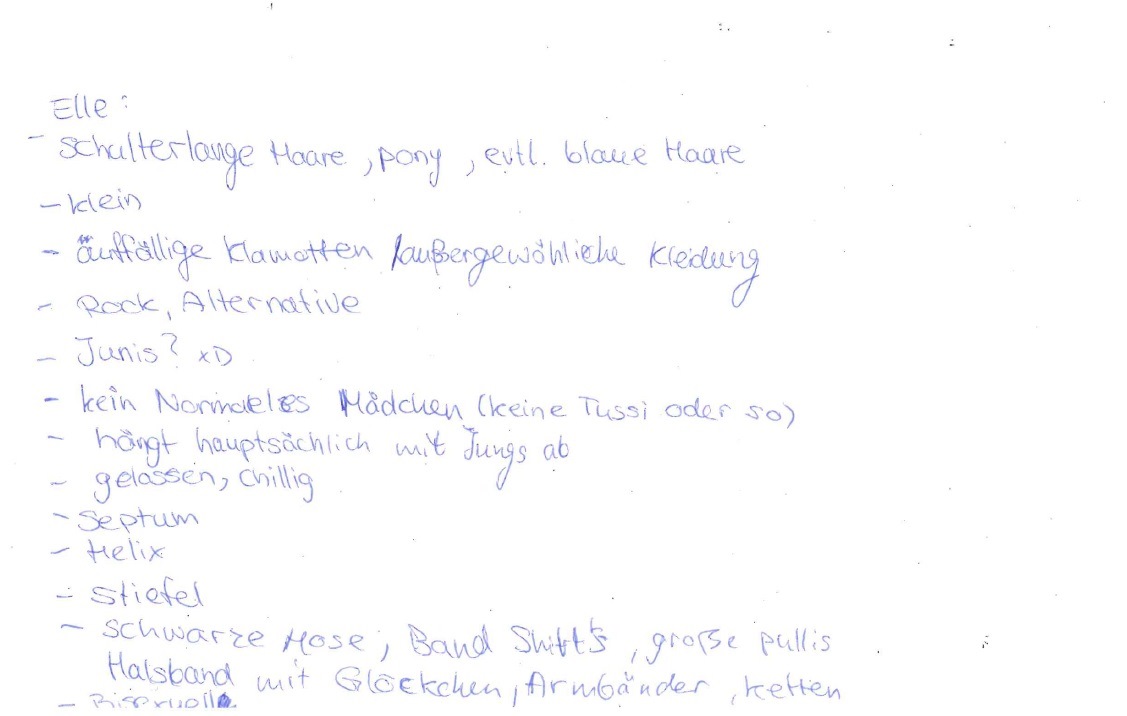 Elle:
- Schulterlange Haare, pony, evtl. blaue Haare
- klein
- auffällige Klamotten /außergewöhliche Kleidung
- Rock, Alternative
- Junis? xD
- kein Normales Mädchen (keine Tussi oder so)
- hängt hauptsächlich mit Jungs ab
- gelassen, chillig
- Septum
- Helix
- Stiefel
- schwarze Hose, Band Shirt's, große pullis
Halsband mit Glöckchen, Armbänder, Ketten